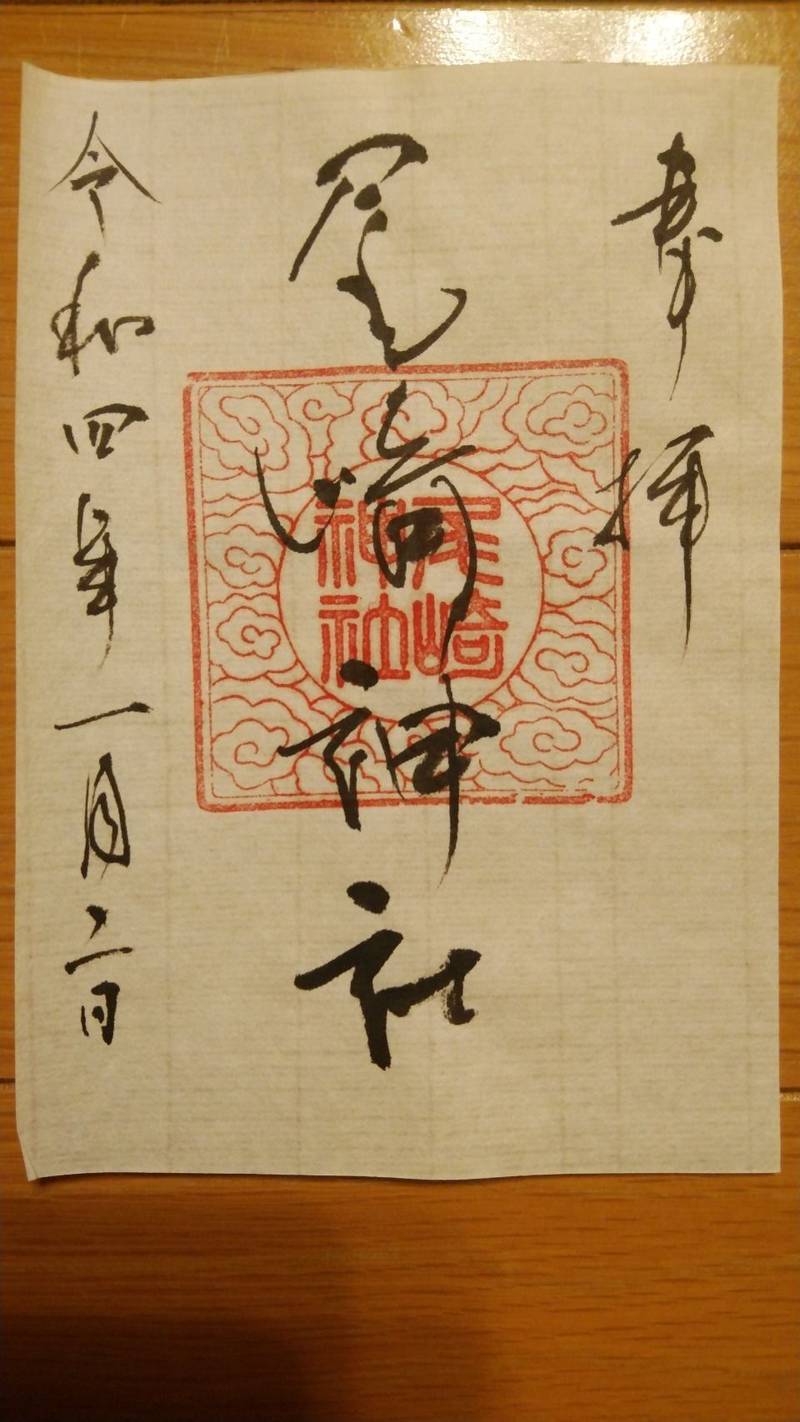 奉拝
尾崎神社
尾崎
神社
令和四年一月二日